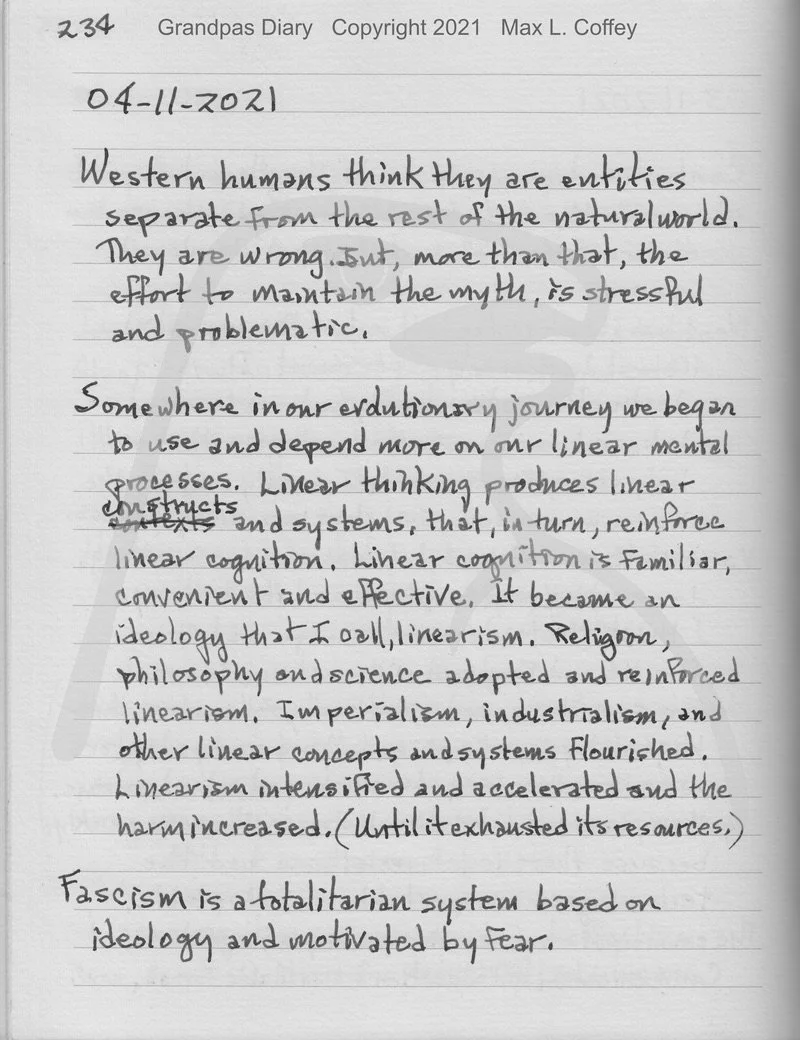 234 Grandpas Diary Copyright 2021 Max L. Coffey
04-11-2021
Western humans think they are entities
separate from the rest of the natural world.
They are wrong. But, more than that, the
effort to maintain the myth, is stressful
and problematic.
Somewhere in our evolutionary journey we began
to use and depend more on our linear mental
processes. Linear thinking produces linear
constructs
contexts and systems, that, in turn, reinforce
linear cognition. Linear cognition is familiar,
convenient and effective. It became an
ideology that I call, linearism. Religion,
philosophy and science adopted and reinforced
linearism. Imperialism, industrialism, and
other linear concepts and systems flourished.
Linearism intensified and accelerated and the
harm increased. (Until it exhausted its resources.)
Fascism is a totalitarian system based on
ideology and motivated by fear.